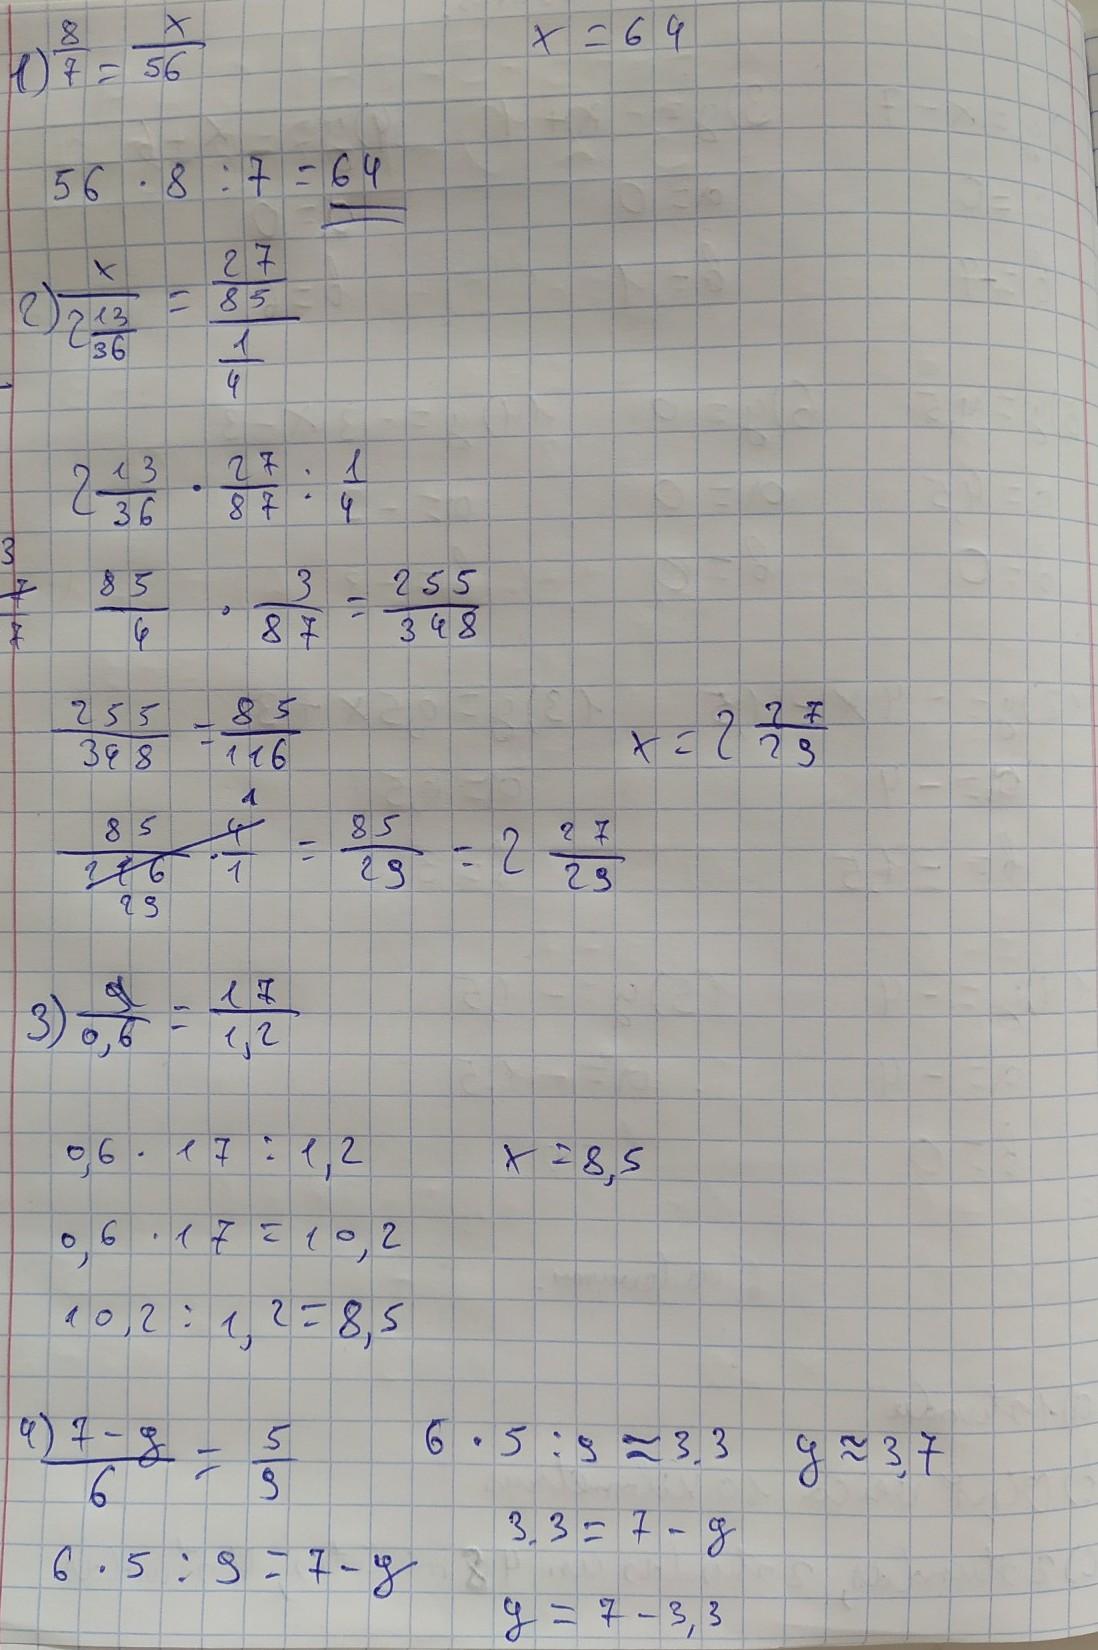 1) 8/7 = x/56 x = 64
56 · 8 : 7 = 64
2) x / 2 13/36 = 27/85 / 1/4
2 13/36 · 27/87 : 1/4
85/4 · 3/87 = 255/348
255/348 = 85/116 x = 2 27/29
85/116 · 4/1 = 85/29 = 2 27/29
29 1
3) y/0,6 = 17/1,2
0,6 · 17 : 1,2 x = 8,5
0,6 · 17 = 10,2
10,2 : 1,2 = 8,5
4) 7 - y / 6 = 5/9 6 · 5 : 9 ≈ 3.3 y ≈ 3,7
3.3 = 7 - y
6 · 5 : 9 = 7 - y
y = 7 - 3,3